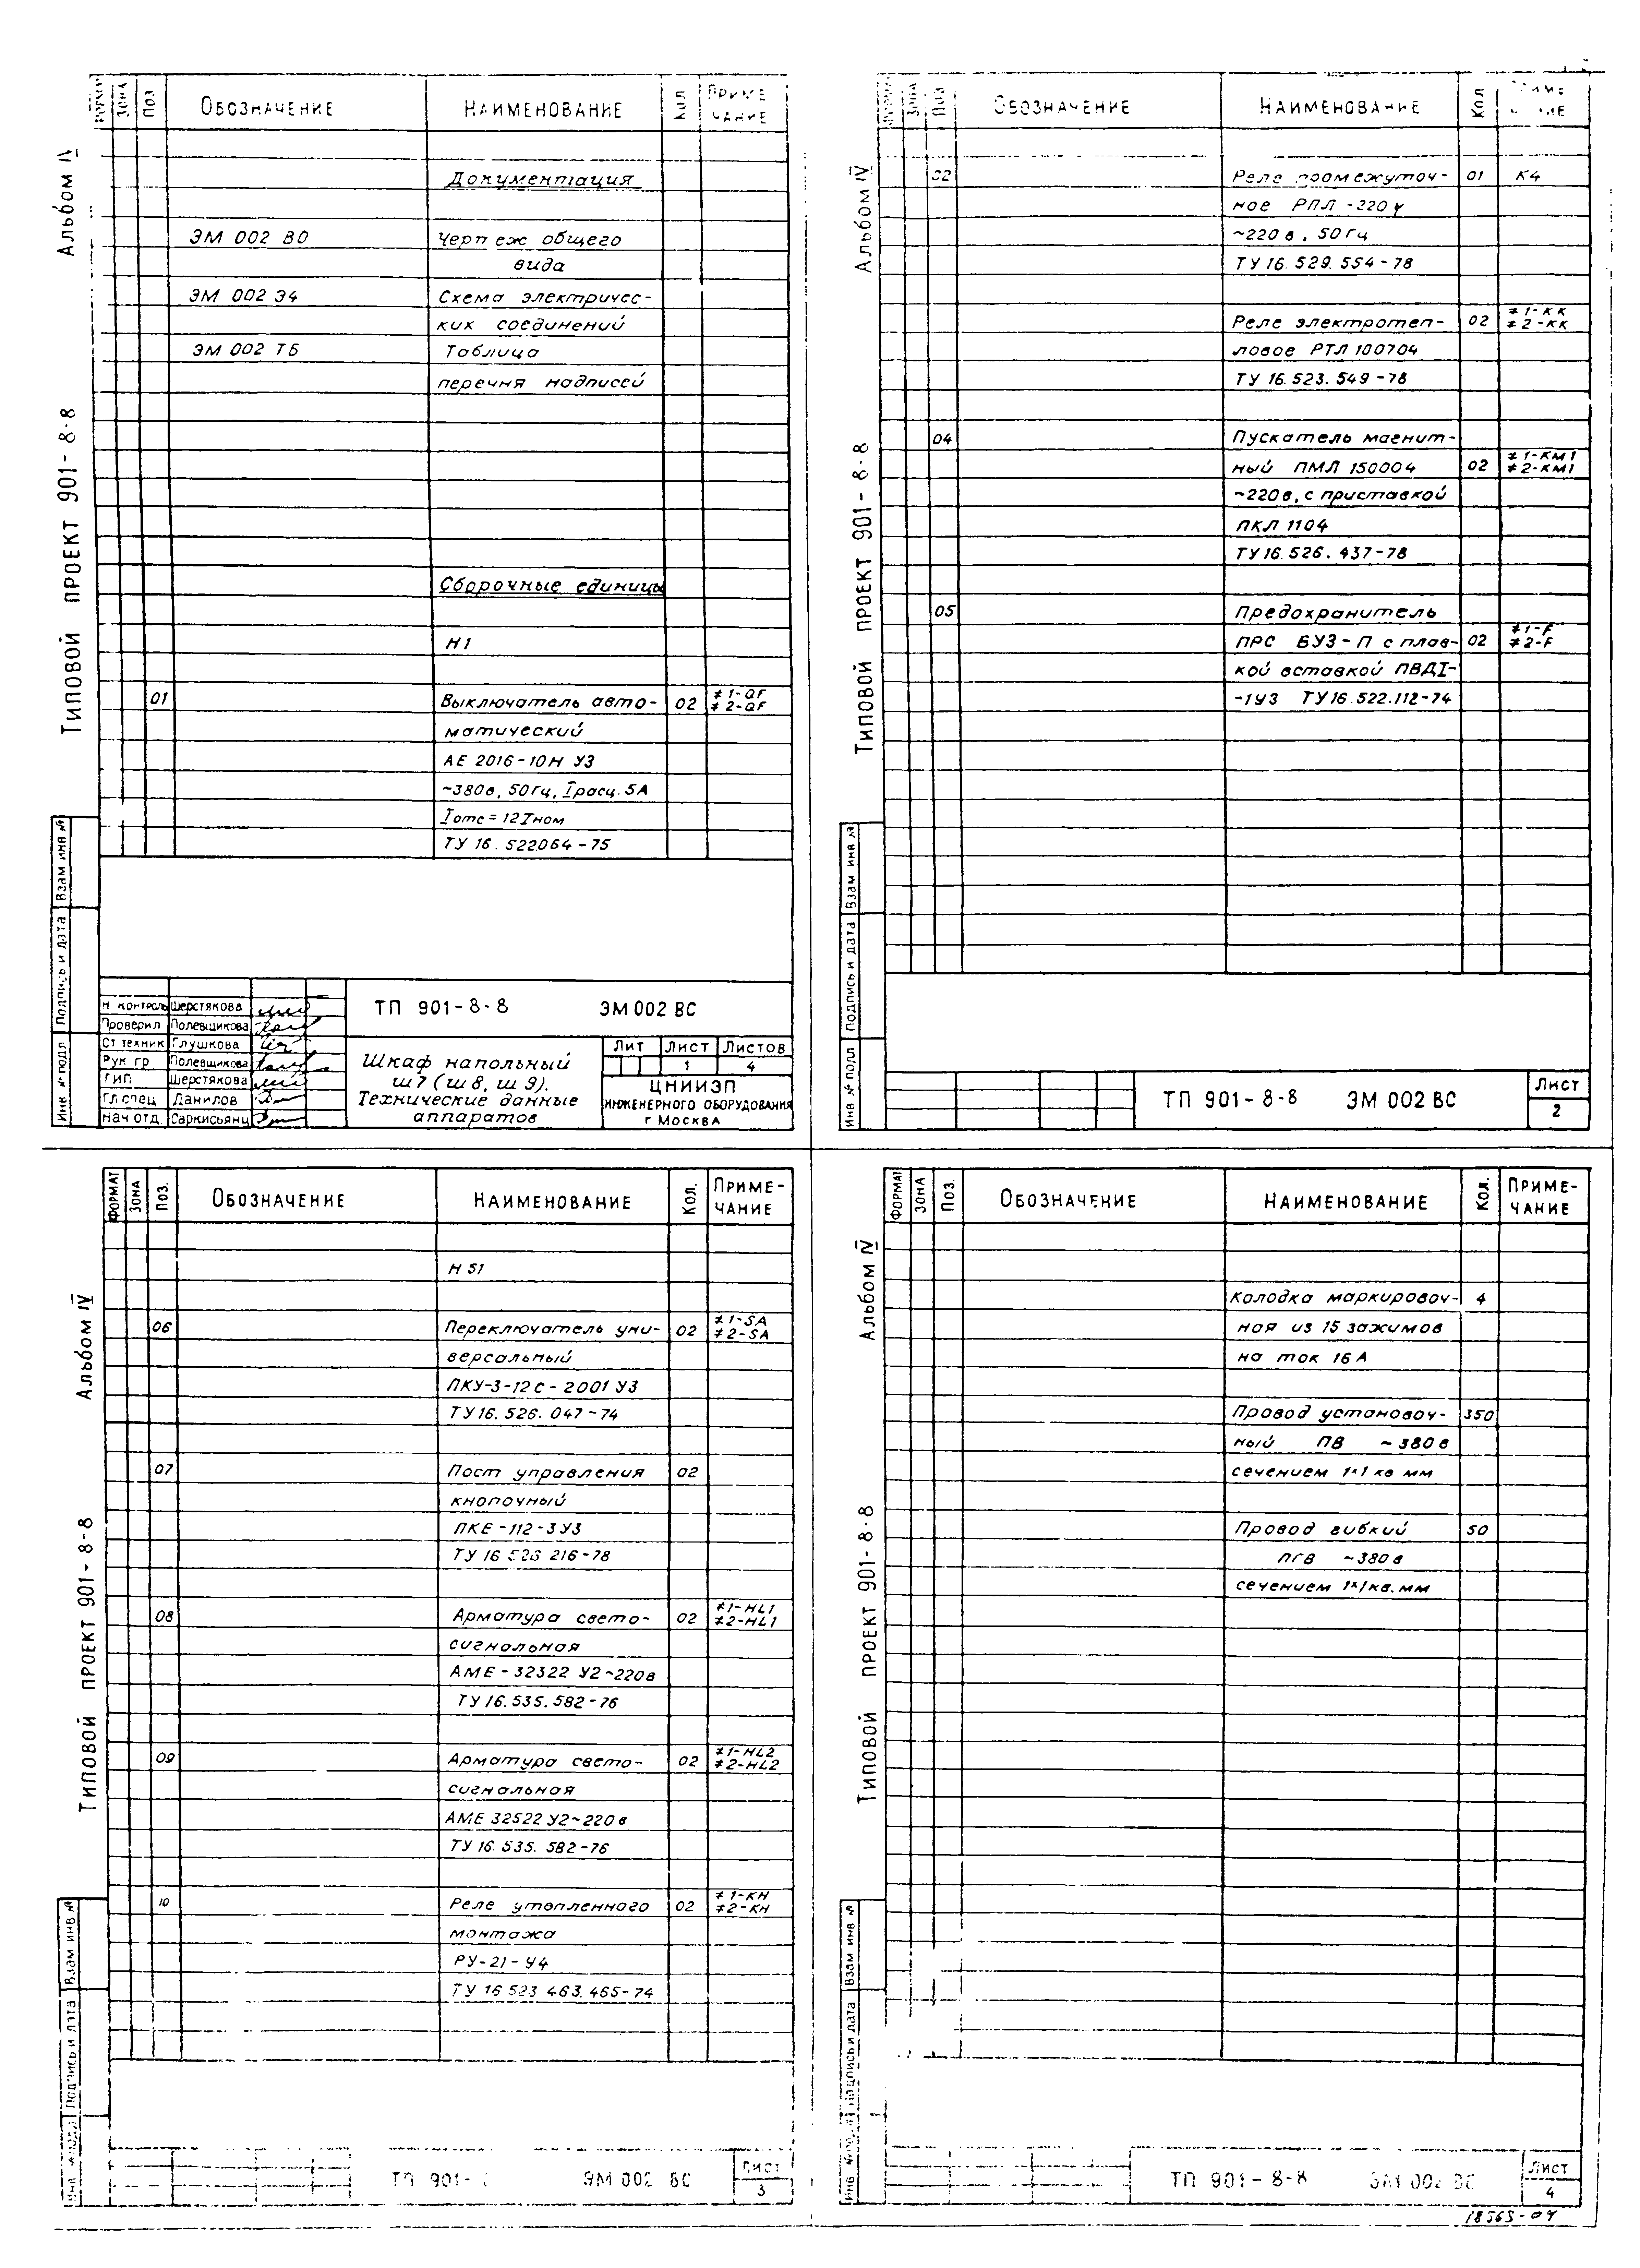 Альбом IV
Типовой проект 901-8-8
Зона
Поз
Обозначение
Наименование
Кол
Приме
чание
Документация
ЭМ 002 ВО
Чертеж общего
вида
ЭМ 002 Э4
Схема электричес-
ких соединений
ЭМ 002 ТБ
Таблица
перечня надписей
Сборочные единицы
Н1
01 Выключатель авто- 02 ≠1-QF
≠2-QF
матический
АЕ 2016-10Н У3
~380в, 50Гц, Iрасц. 5А
Iотс = 12Iном
ТУ 16. 522.064-75
Взам инв №
Подпись и дата
Инв № подл
Н контроль Шерстякова
Проверил Полевщикова
Ст техник Глушкова
Рук гр Полевщикова
ГИП Шерстякова
Гл спец Данилов
Нач отд. Саркисьянц
ТП 901-8-8 ЭМ 002 ВС
Шкаф напольный
ш7 (ш8, ш9).
Технические данные
аппаратов
Лит Лист Листов
1 4
ЦНИИЭП
инженерного оборудования
г Москва
Альбом IV
Типовой проект 901-8-8
Зона
Поз
Обозначение
Наименование
Кол
02 Реле промежуточ- 01 К4
ное РПЛ-220 У
~220в, 50Гц
ТУ 16. 529. 554-78
Реле электротеп- 02 ≠1-КК
≠2-КК
ловое РТЛ 100704
ТУ 16. 523. 549-78
04 Пускатель магнит-
ный ПМЛ 150004 02 ≠1-КМ1
≠2-КМ1
~220в, с приставкой
ПКЛ 1104
ТУ 16. 526. 437-78
05 Предохранитель
ПРС БУЗ-П с плав- 02 ≠1-F
≠2-F
кой вставкой ПВДI-
-1У3 ТУ 16.522.112-74
Взам инв №
Подпись и дата
Инв № подл
ТП 901-8-8 ЭМ 002 ВС
Лист
2
Альбом IV
Типовой проект 901-8-8
Формат
Зона
Поз.
Обозначение
Наименование
Кол.
Приме-
чание
Н 51
06 Переключатель уни- 02 ≠1-SA
≠2-SA
версальный
ПКУ-3-12С-2001 У3
ТУ 16. 526. 047-74
07 Пост управления 02
кнопочный
ПКЕ-112-3У3
ТУ 16 526 216-78
08 Арматура свето- 02 ≠1-HL1
≠2-HL1
сигнальная
АМЕ-32322 У2~220в
ТУ 16. 535. 582-76
09 Арматура свето- 02 ≠1-HL2
≠2-HL2
сигнальная
АМЕ 32522 У2~220в
ТУ 16. 535. 582-76
10 Реле утопленного 02 ≠1-КН
≠2-КН
монтажа
РУ-21-У4
ТУ 16 523 463.465-74
Взам инв №
Подпись и дата
ТП 901- ЭМ 002 ВС
Лист
3
Альбом IV
Типовой проект 901-8-8
Формат
Зона
Поз.
Обозначение
Наименование
Кол.
Приме-
чание
Колодка маркировоч- 4
ная из 15 зажимов
на ток 16 А
Провод установоч- 350
ный ПВ ~380в
сечением 1*1 кв мм
Провод гибкий 50
ПГВ ~380в
сечением 1*1 кв. мм
Взам инв №
Подпись и дата
ТП 901-8-8 ЭМ 002 ВС
Лист
4
18565-04